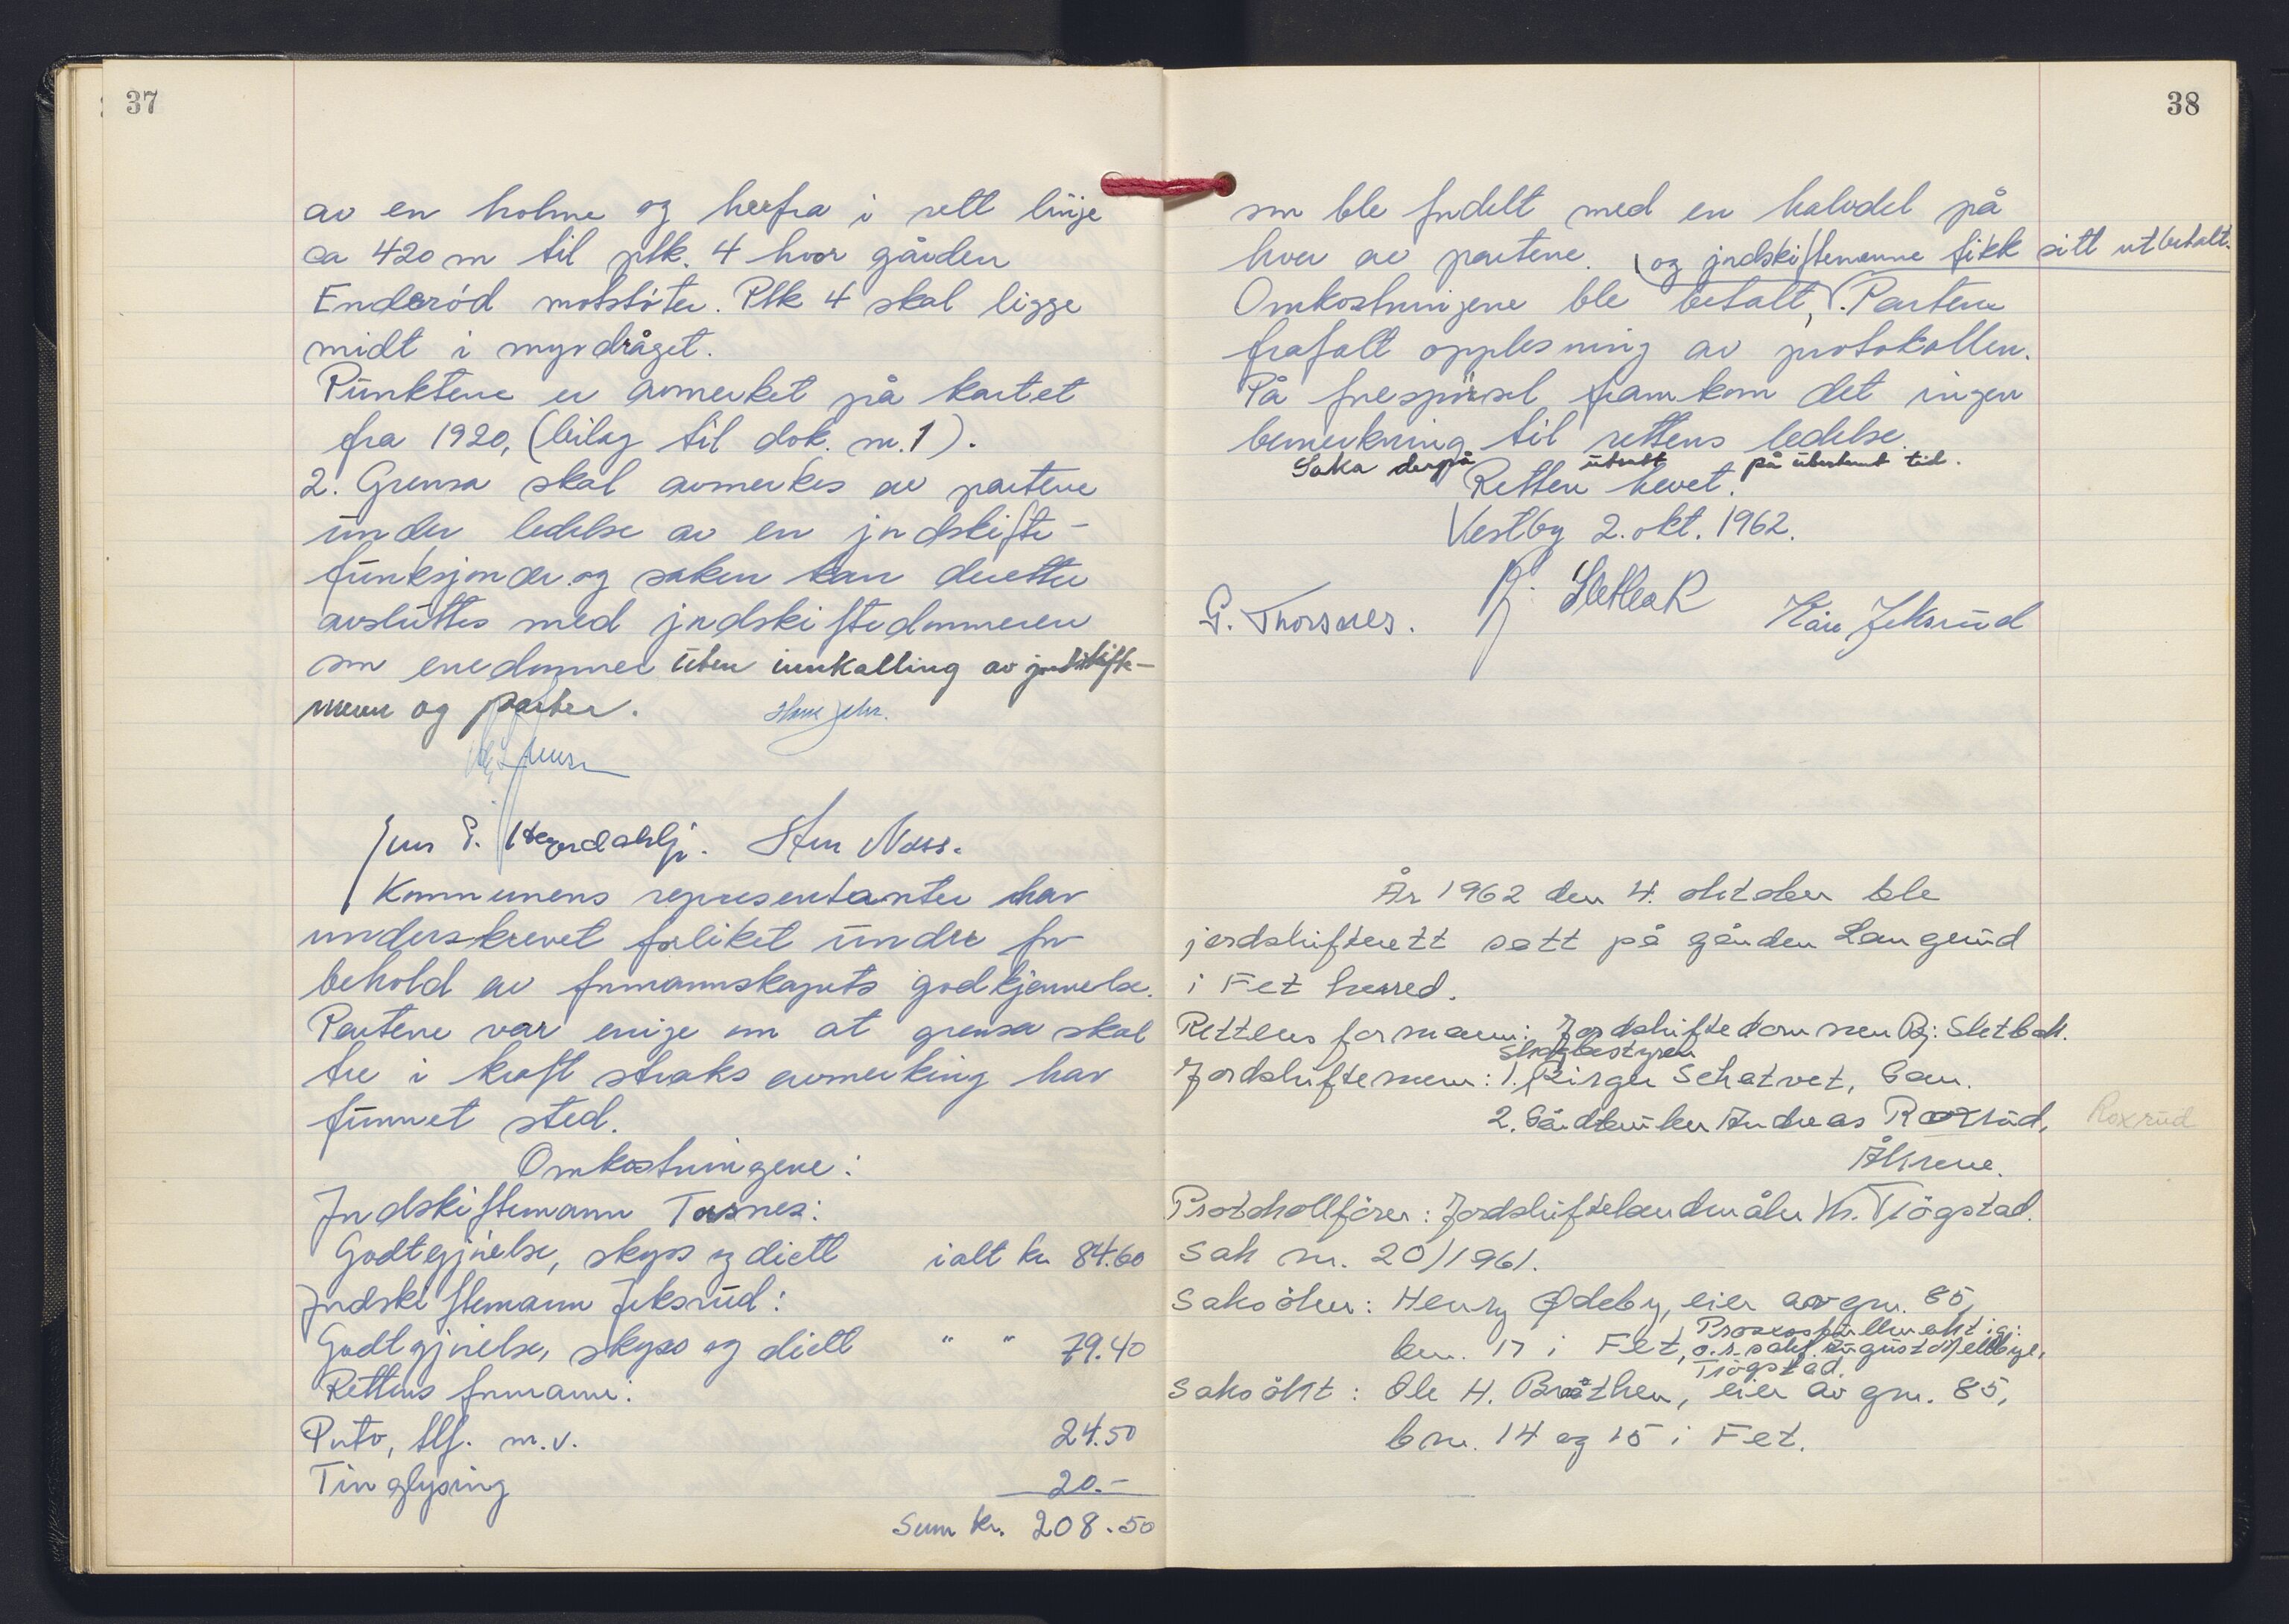 37
av en holme og herfra i rett linje
ca 420 m til plk. 4 hvor gården
Enderöd motstöter. Plk 4 skal ligge
midt i myrdråget.
Punktene er avmerket på kartet
fra 1920, (bilag til dok. nr. 1).
2. Grensa skal avmerkes av partene
under ledelse av en jordskifte-
funksjonær og saken kan deretter
avsluttes med jordskiftedommeren
som enedommer uten innkalling av jordskifte-
menn og parter.
Jens E.
Kommunens representanter har
underskrevet forliket under for-
behold av formannskapets godkjennelse.
Partene var enige om at grensa skal
tre i kraft straks avmerking har
funnet sted.
Omkostningene:
Jordskiftemann Tosnes:
Godtgjörelse, skyss og diett ialt kr. 84.60
Jordskiftemann Jeksrud:
Godtgjörelse, skyss og diett " " 79.40
Rettens formann:
Porto, tlf. m.v. 24.50
Tinglysing 20.-
Sum kr. 208.50
38
som ble fordelt med en halvdel på
hver av partene.
Omkostningene ble betalt, og jordskiftemennene fikk sitt utbetalt. Partene
frafalt opplesning av protokollen.
På forespörsel framkom det ingen
bemerkning til rettens ledelse.
Saka derpå utsatt på ubestemt tid.
Retten hevet.
Vestby 2. okt. 1962.
G. Thorsnes. Bj. Sletbak Kåre Jeksrud
År 1962 den 4. oktober ble
jordskifterett satt på gården Langerud
i Fet herred.
Rettens formann: Jordskiftedommer Bj. Sletbak.
Skogbestyrer
Jordskiftemenn: 1. Birger Schatvet, Gan.
2. Gårdbruker Andreas Roxrud, Roxrud
Åkrene.
Protokollförer: Jordskiftelandmåler Kr. Tjögstad.
Sak nr. 20/1961.
Saksöker: Henry Ødeby, eier av gnr. 85,
bnr. 17 i Fet, Prosessfullmektig:
o.r. sakf. August Mellbye,
Trögstad.
Saksökt: Ole H. Bråthen, eier av gnr. 85,
bnr. 14 og 15 i Fet.